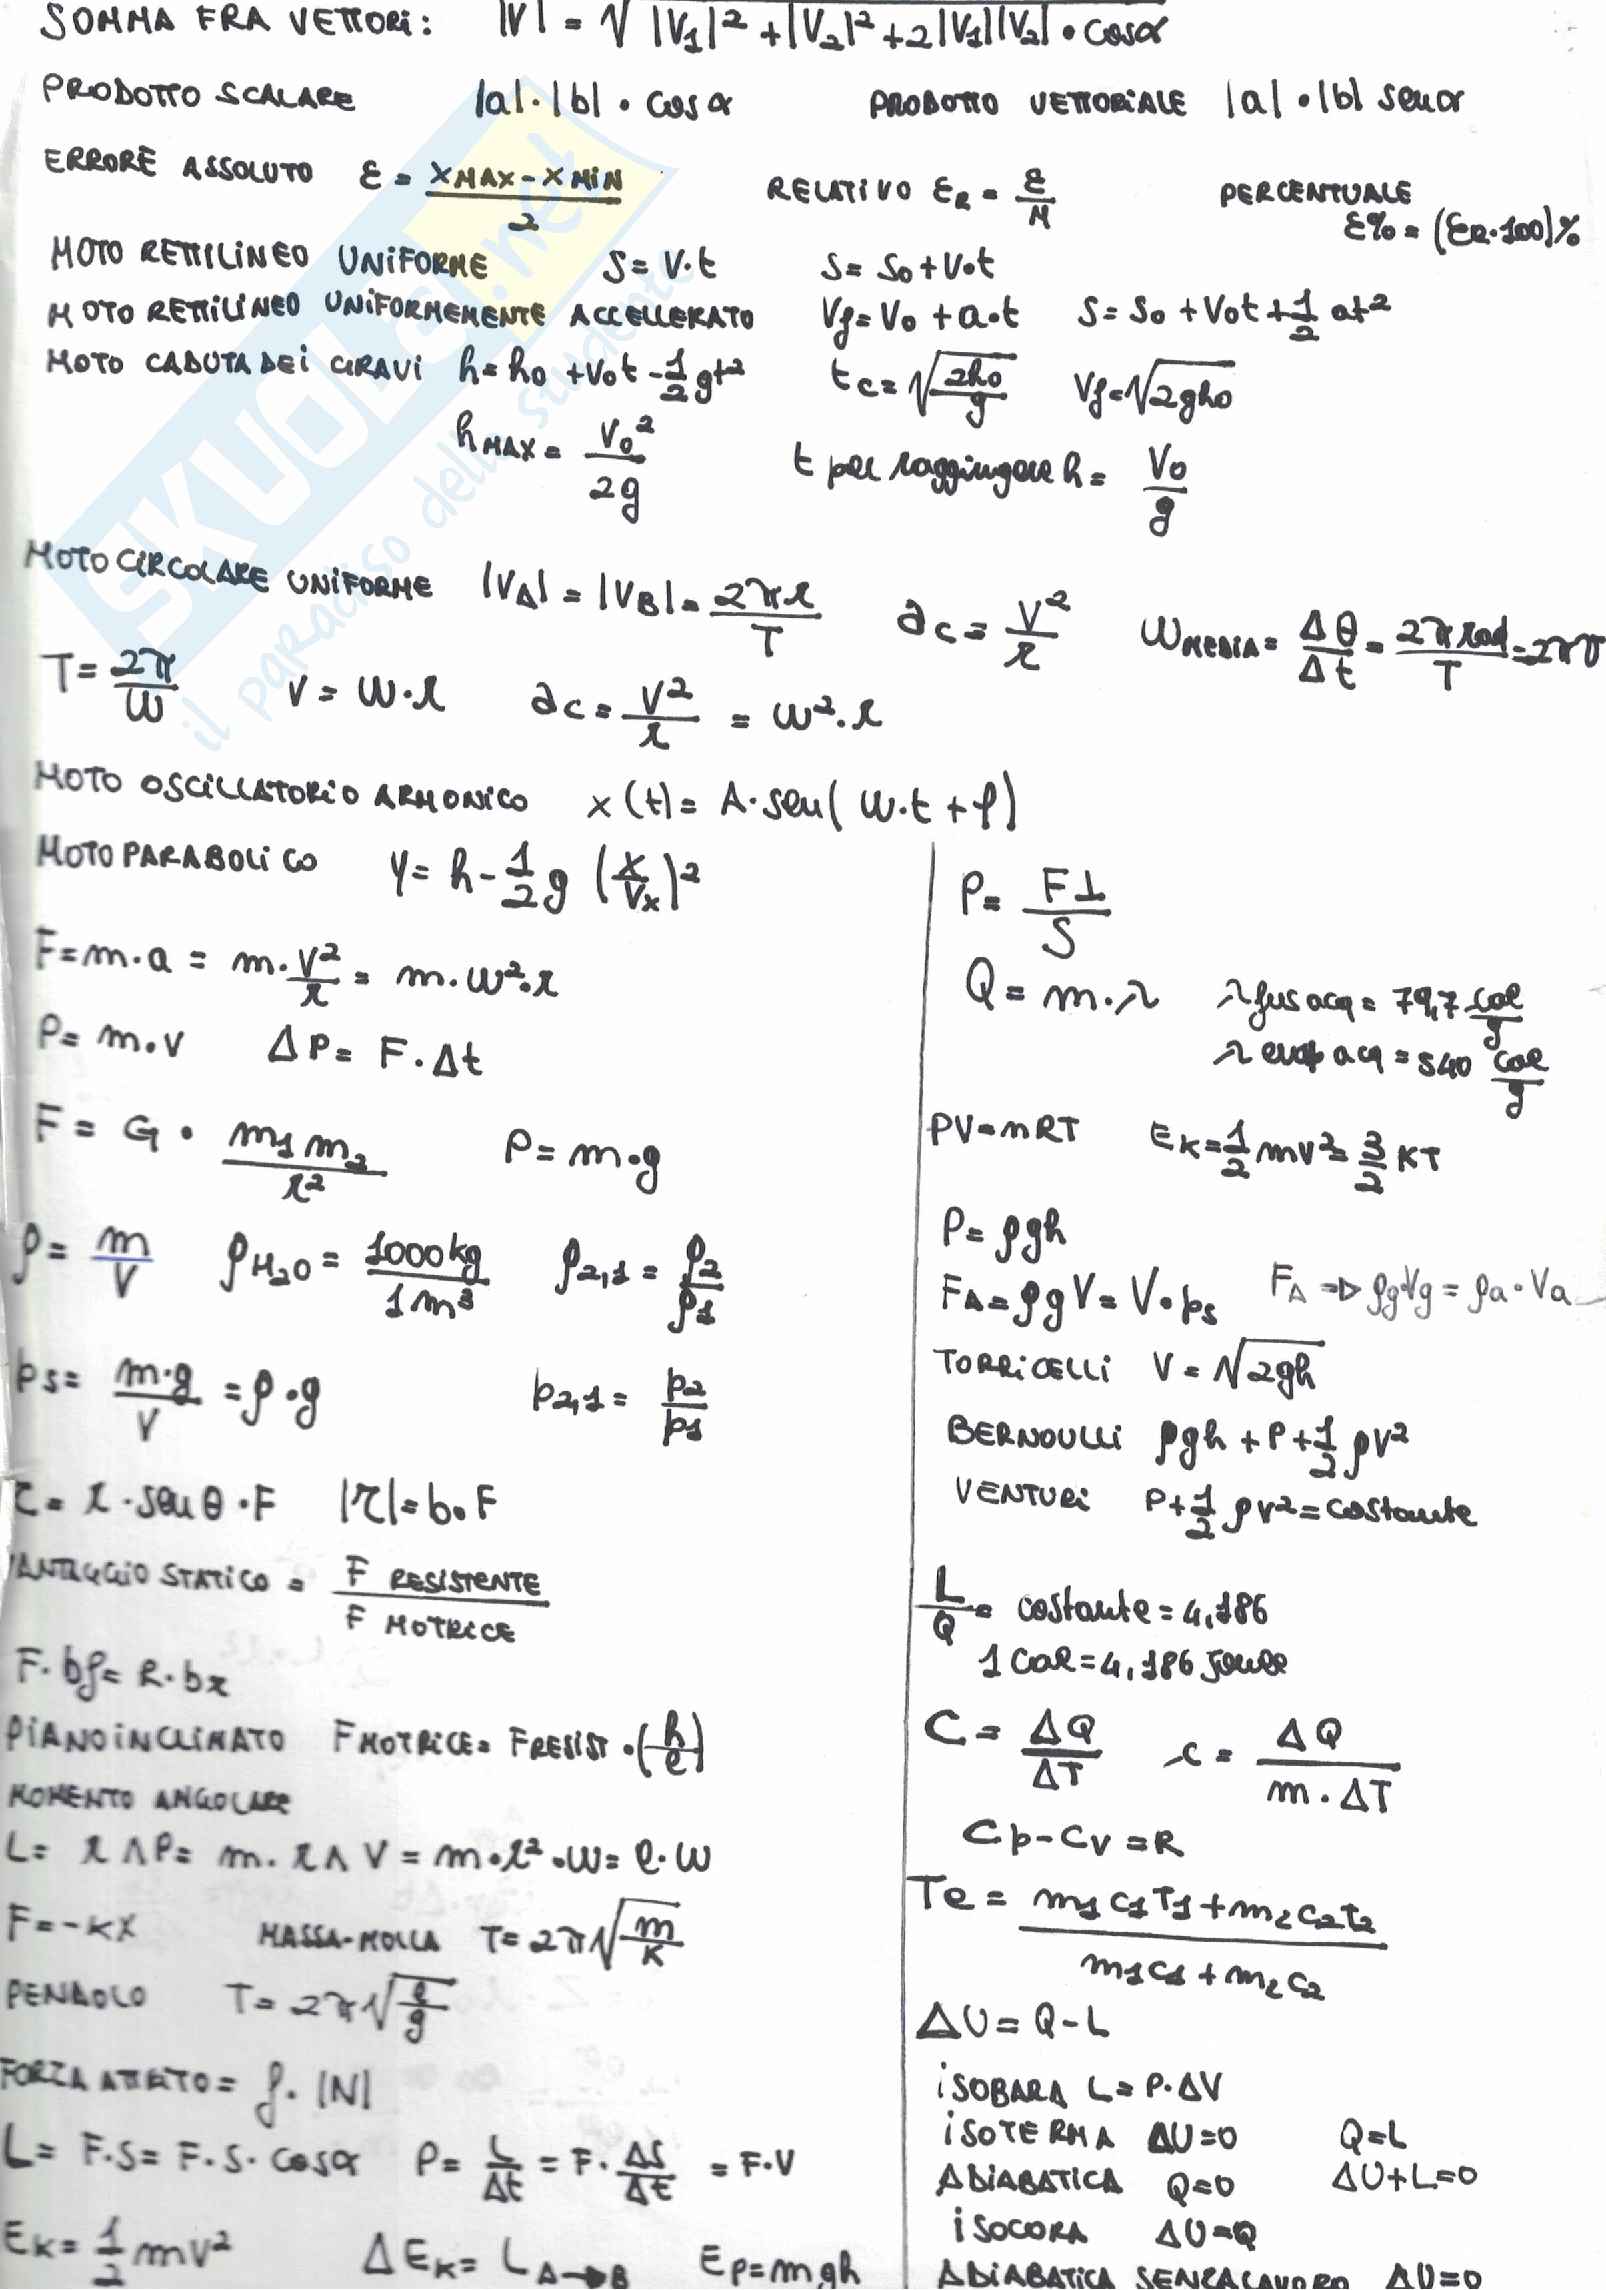 SOMMA FRA VETTORI: |V| = √|V₁|² + |V₂|² + 2|V₁||V₂| • cosα
PRODOTTO SCALARE |a|·|b| • cosα PRODOTTO VETTORIALE |a| • |b| senα
ERRORE ASSOLUTO ε = (X MAX - X MIN)/2 RELATIVO εR = ε/M PERCENTUALE
ε% = (εR·100)%
MOTO RETTILINEO UNIFORME S = V·t S = S₀ + V·t
MOTO RETTILINEO UNIFORMEMENTE ACCELLERATO Vf = V₀ + a·t S = S₀ + V₀t + 1/2 at²
MOTO CADUTA DEI GRAVI h = h₀ + V₀t - 1/2 gt² tc = √(2h₀/g) Vf = √2gh₀
hMAX = V₀²/2g t per raggiungere h = V₀/g
MOTO CIRCOLARE UNIFORME |VA| = |VB| = 2πr/T ac = V²/r ωMEDIA = Δθ/Δt = 2π rad/T = 2πν
T = 2π/ω V = ω·r ac = V²/r = ω²·r
MOTO OSCILLATORIO ARMONICO x(t) = A·sen(ω·t + φ)
MOTO PARABOLICO Y = h - 1/2 g (X/Vx)²
F = m·a = m·V²/r = m·ω²·r
P = m·v ΔP = F·Δt
F = G • m₁m₂/r² P = m·g
ρ = m/V ρH₂O = 1000kg/1m³ ρ2,1 = ρ2/ρ1
ps = m·g/V = ρ·g p2,1 = p2/p1
τ = r·senθ·F |τ| = b·F
VANTAGGIO STATICO = F RESISTENTE/F MOTRICE
F·bf = R·br
PIANO INCLINATO F MOTRICE = F RESIST·(h/l)
MOMENTO ANGOLARE
L = r ∧ P = m·r ∧ V = m·r²·ω = l·ω
F = -KX MASSA-MOLLA T = 2π√(m/K)
PENDOLO T = 2π√(l/g)
FORZA ATTRITO = f·|N|
L = F·S = F·S·cosα P = L/Δt = F·ΔS/Δt = F·V
EK = 1/2 mV² ΔEK = L A→B EP = mgh
P = F⊥/S
Q = m·λ λ fus acq = 79,7 cal/g
λ evap acq = 540 cal/g
PV = nRT EK = 1/2 mv² = 3/2 KT
P = ρgh
FA = ρgV = V·ps FA ⇒ ρg·Vg = ρa·Va
TORRICELLI V = √2gh
BERNOULLI ρgh + P + 1/2 ρV²
VENTURI P + 1/2 ρV² = costante
L/Q = costante = 4,186
1 cal = 4,186 joule
C = ΔQ/ΔT c = ΔQ/m·ΔT
Cp - Cv = R
Te = (m₁c₁T₁ + m₂c₂t₂)/(m₁c₁ + m₂c₂)
ΔU = Q - L
ISOBARA L = P·ΔV
ISOTERMA ΔU = 0 Q = L
ADIABATICA Q = 0 ΔU + L = 0
ISOCORA ΔU = Q
ADIABATICA SENZA LAVORO ΔU = 0
SKUOLA.net
il paradiso dello studente